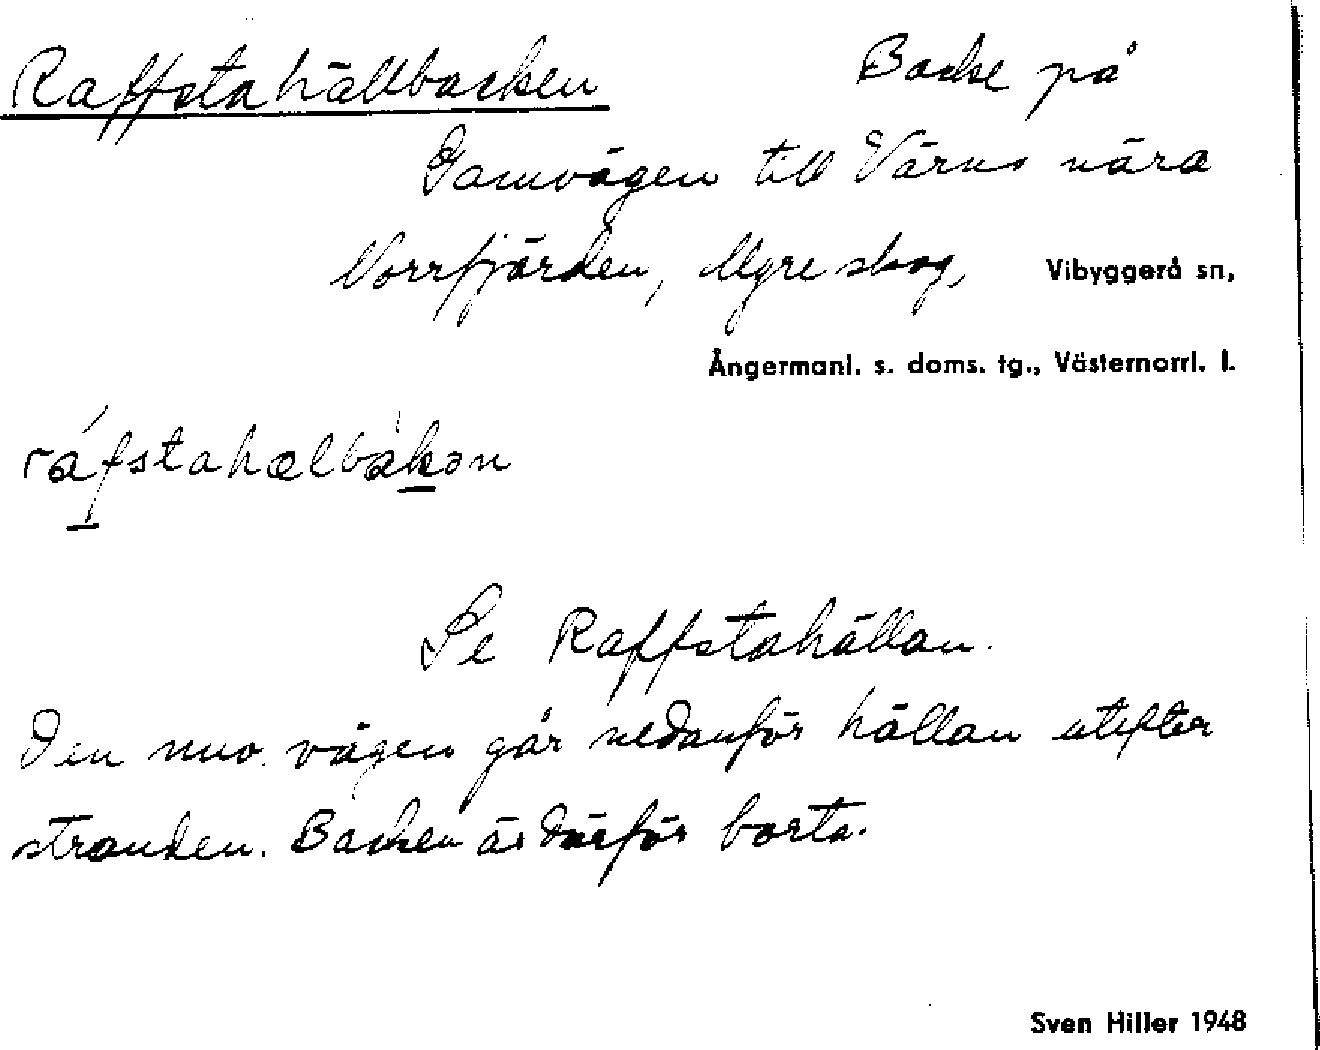 Raffstahällbacken Backe på
Gamvägen till Värns nära
Norrfjärden, Mgre skog, Vibyggerå sn,
Ångermanl. s. doms. tg., Västernorrl. l.
ráfstahælbàkən
Se Raffstahällan.
Den nuv. vägen går nedanför hällan utefter
stranden. Backen är därför borta.
Sven Hiller 1948